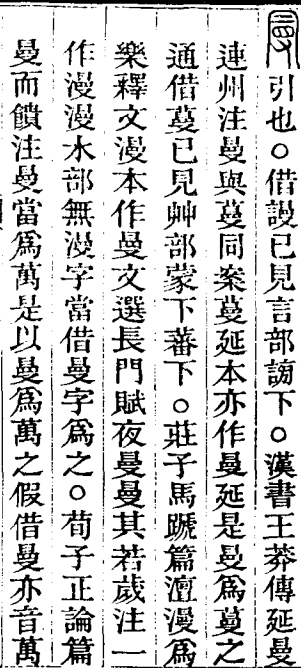 曼引也○借謾已見言部謭下○漢書王莽傳延曼
連州注曼與蔓同案蔓延本亦作曼延是曼爲蔓之
通借蔓已見艸部蒙下蕃下○莊子馬蹏篇澶漫爲
樂釋文漫本作曼文選長門賦夜曼曼其若歲注一
作漫漫水部無漫字當借曼字爲之○荀子正論篇
曼而饋注曼當爲萬是以曼爲萬之假借曼亦音萬